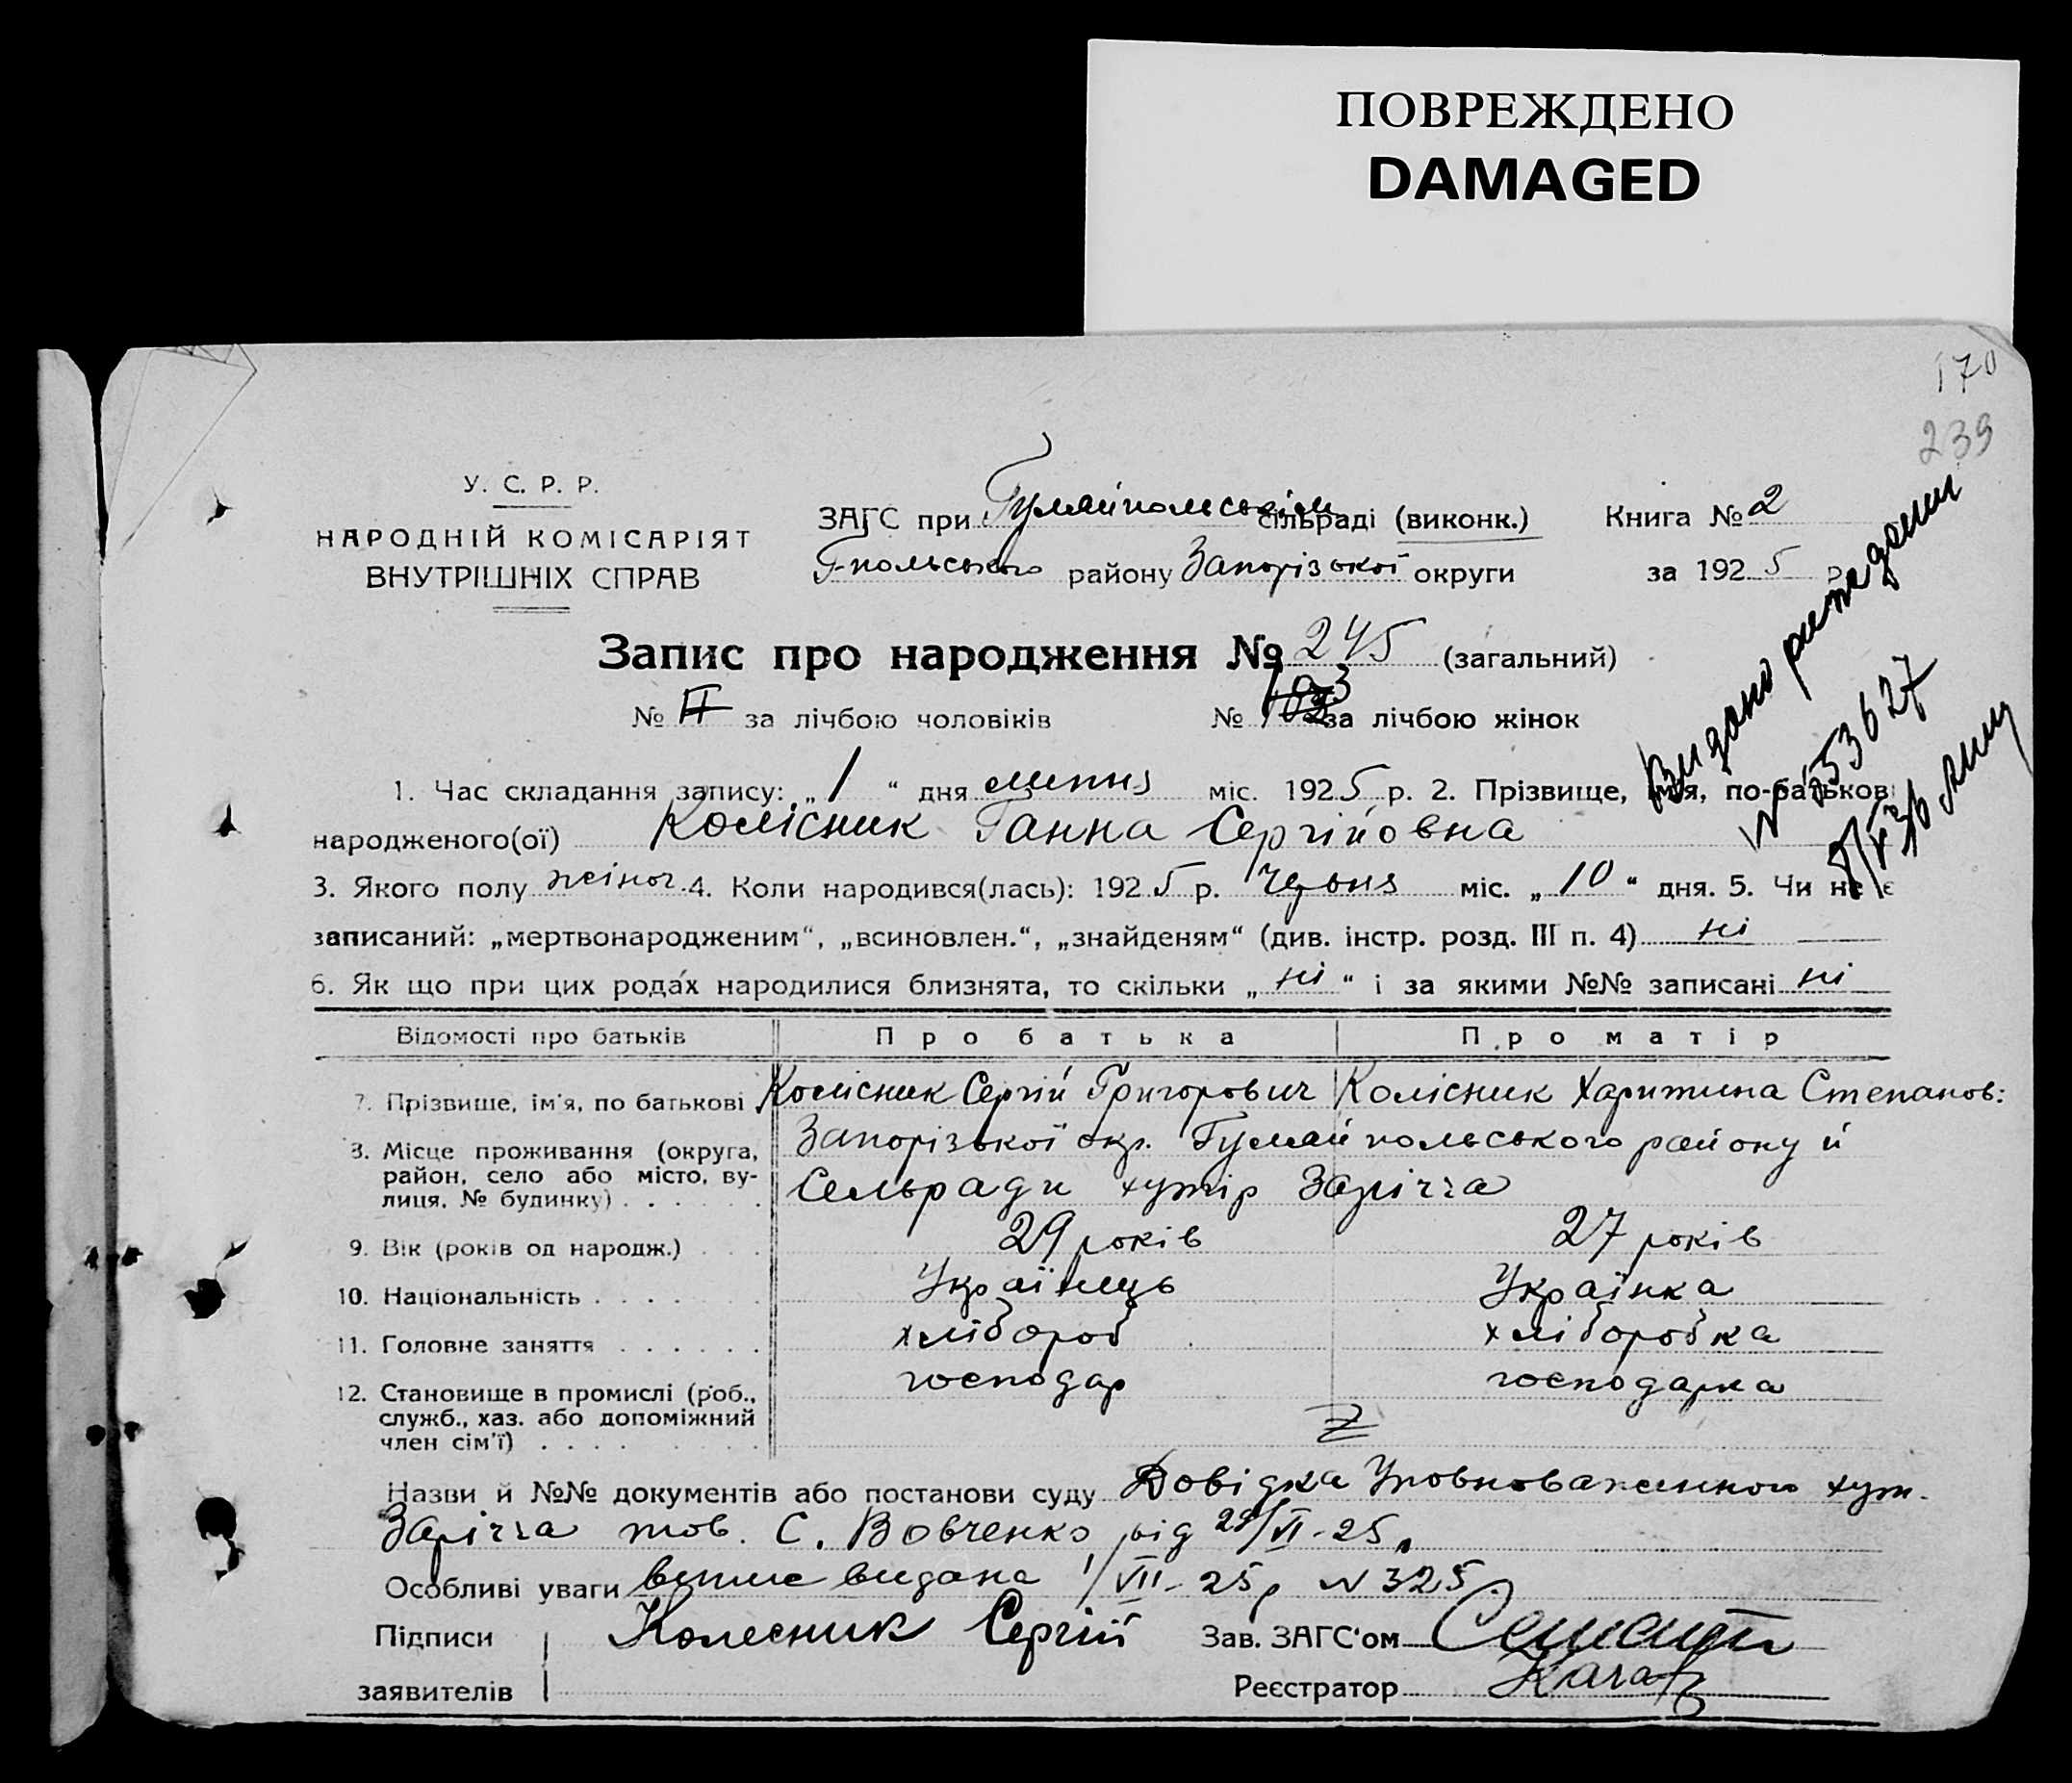 ПОВРЕЖДЕНО
DAMAGED
170
239
У. С. Р. Р.
НАРОДНІЙ КОМІСАРІЯТ
ВНУТРІШНІХ СПРАВ
ЗАГС при Гуляйпольськім сільраді (виконк.)
Г-польського району Запорізької округи
Книга № 2
за 1925 р.
Запис про народження № 245 (загальний)
№ за лічбою чоловіків № 103 за лічбою жінок
Видано
№ 53627
1. Час складання запису: „ 1 “ дня липня міс. 1925 р. 2. Прізвище, ім'я, по-батькові
народженого(ої) Колісник Ганна Сергійовна
3. Якого полу жіноч. 4. Коли народився(лась): 1925 р. червня міс. „ 10 “ дня. 5. Чи не є
записаний: „мертвонародженим“, „всиновлен.“, „знайденям“ (див. інстр. розд. III п. 4) ні
6. Як що при цих родах народилися близнята, то скільки „ ні “ і за якими №№ записані ні
Відомості про батьків Про батька Про матір
7. Прізвище, ім'я, по батькові Колісник Сергій Григорович Колісник Харитина Степанов:
8. Місце проживання (округа, район, село або місто, вулиця, № будинку) Запорізької окр. Гуляйпольського району й
Сельради хутір Заріччя
9. Вік (років од народж.) 29 років 27 років
10. Національність Українець Українка
11. Головне заняття хлібороб хліборобка
12. Становище в промислі (роб., служб., хаз. або допоміжний член сім'ї) господар господарка
Назви й №№ документів або постанови суду Довідка Уповноваженного хут.
Заріччя тов. С. Вовченко від 29/VI-25.
Особливі уваги витис видана 1/VII-25р № 325
Підписи Колесник Сергій Зав. ЗАГС'ом
заявителів Реєстратор